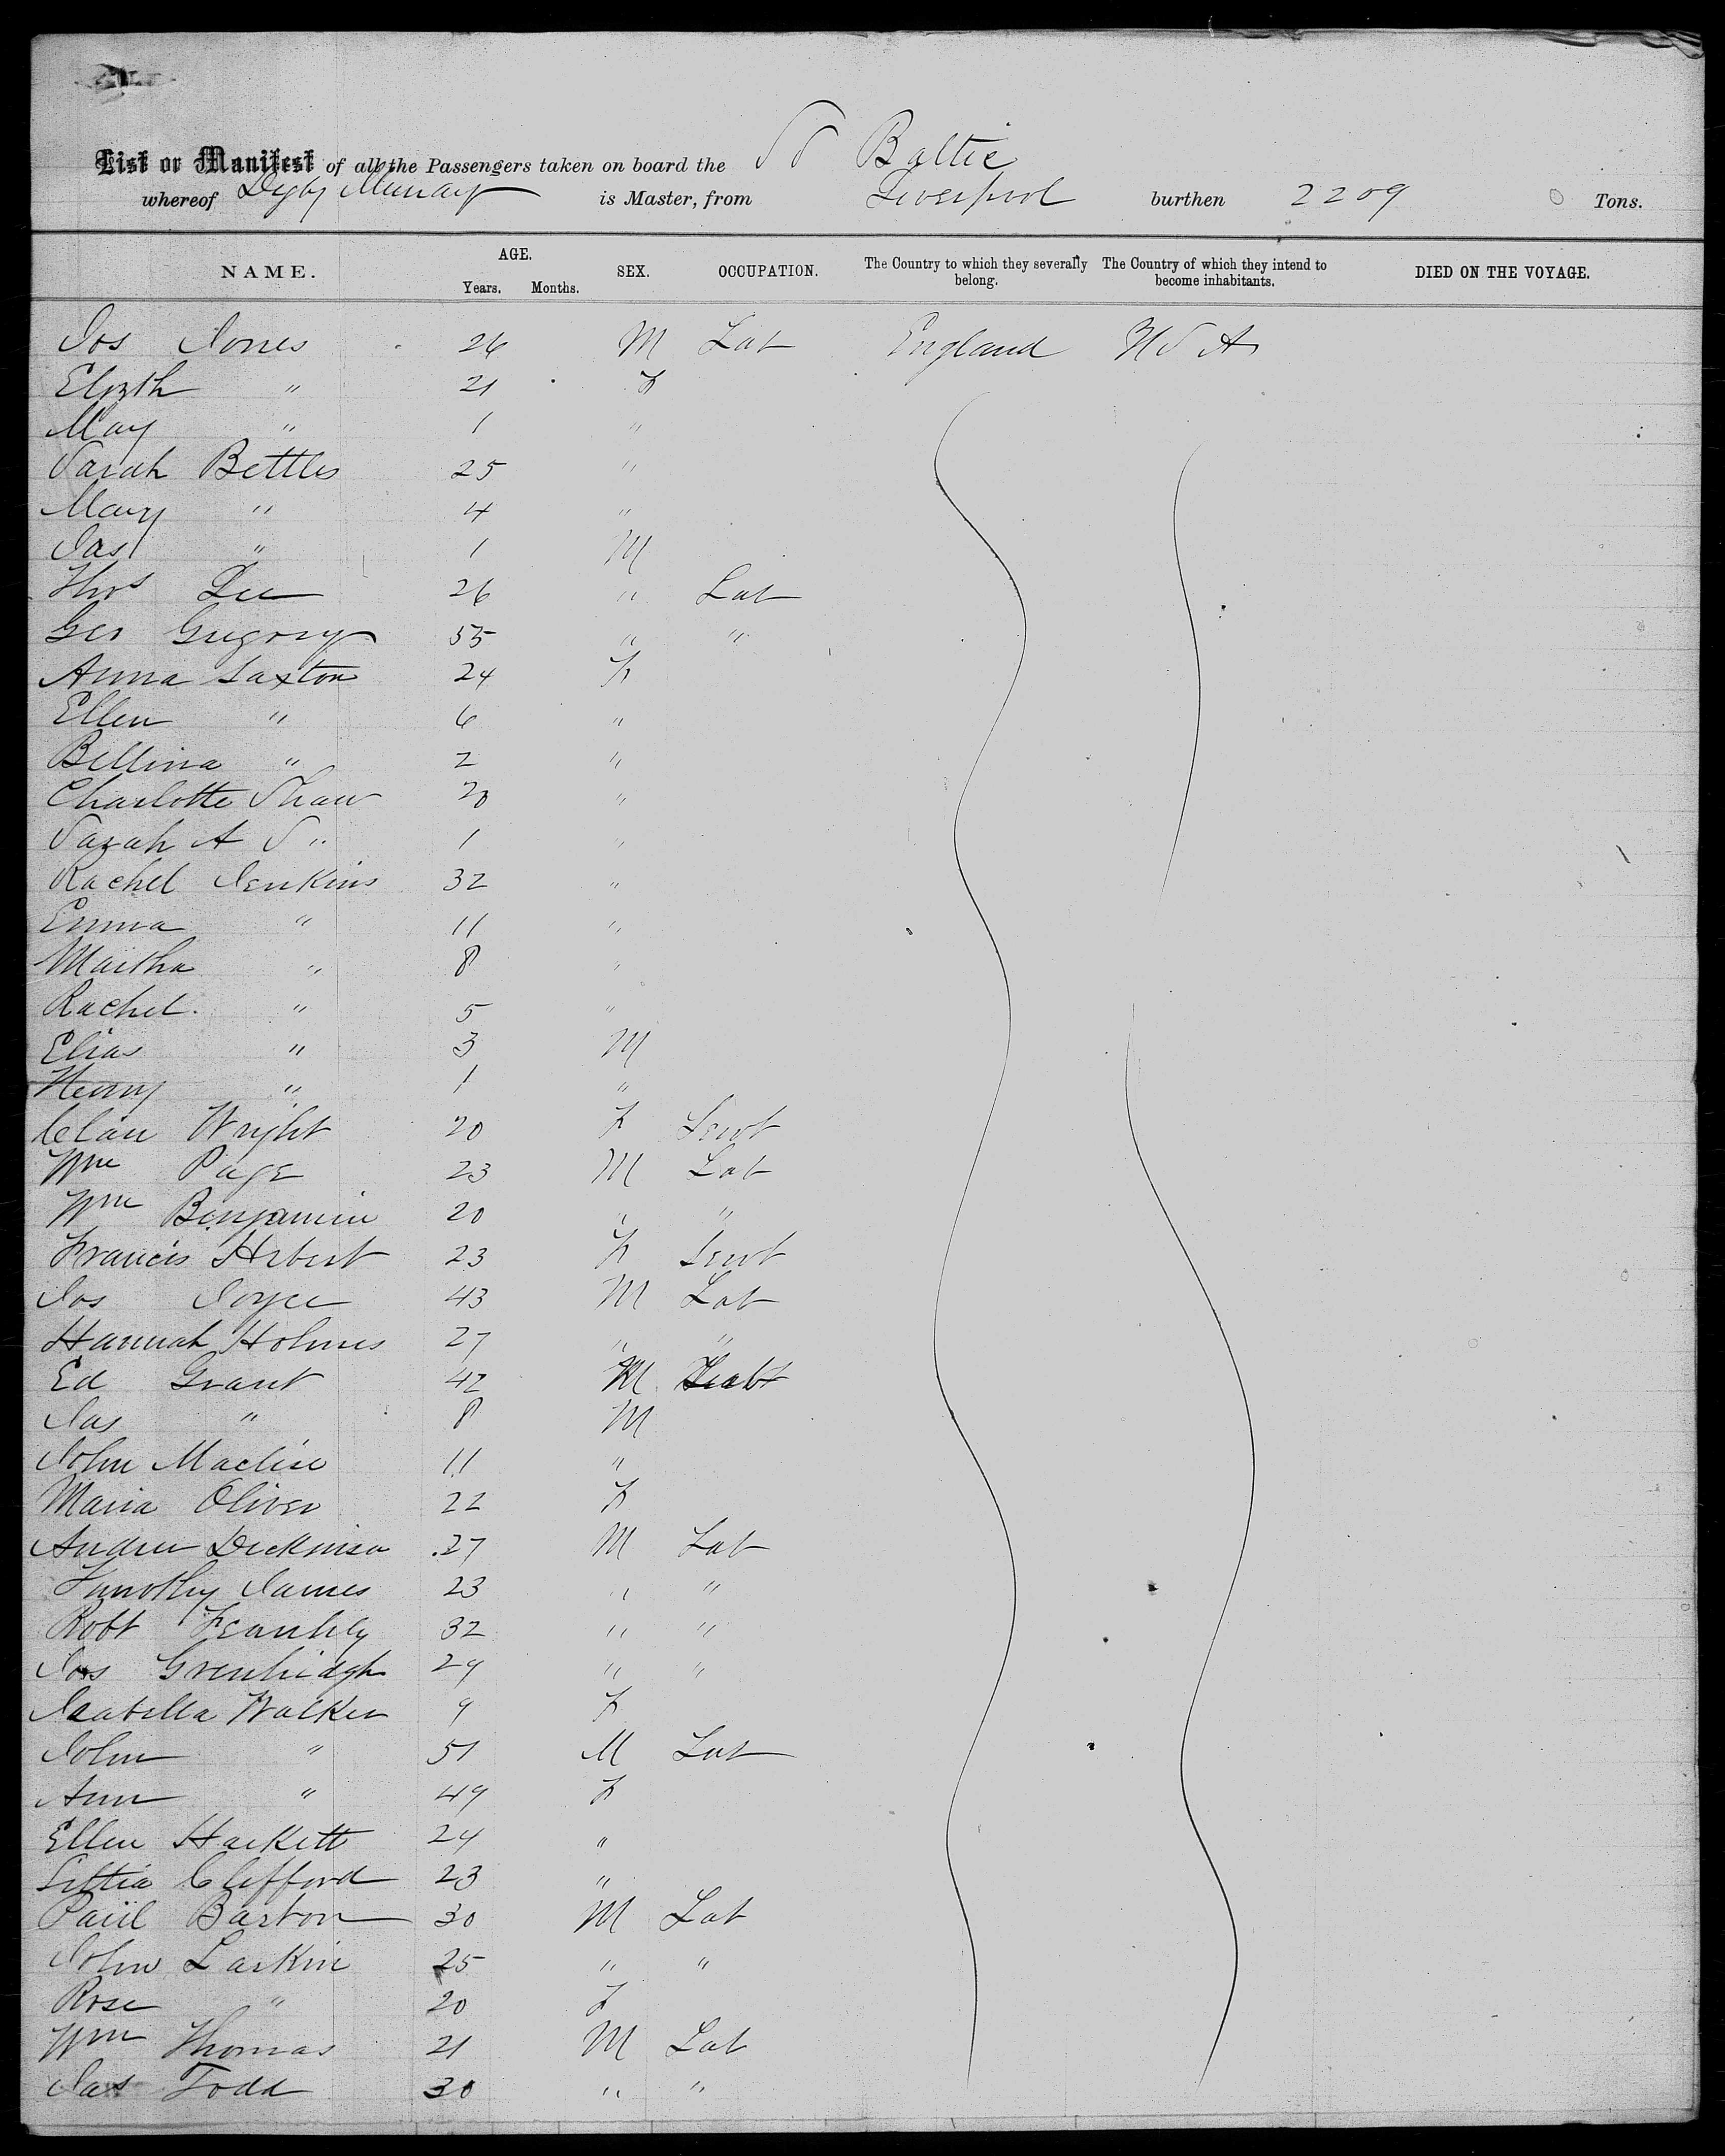 List or Manifest of all the Passengers taken on board the SS Baltic
whereof Digby Murray is Master, from Liverpool burthen 2209 Tons.
NAME. AGE. Years. Months. SEX. OCCUPATION. The Country to which they severally belong. The Country of which they intend to become inhabitants. DIED ON THE VOYAGE.
Jos Jones 26 M Lab England U S A
Elizth " 21 F
May " 1 "
Sarah Bettles 25 "
Mary " 4 "
Jas " 1 M
Thos Lee 26 " Lab
Geo Gregory 55 " "
Anna Saxton 24 F
Ellen " 6 "
Bellina " 2 "
Charlotte Shaw 20 "
Sarah A S " 1 "
Rachel Jenkins 32 "
Emma " 11 "
Martha " 8 "
Rachel " 5 "
Elias " 3 M
Henry " 1 "
Clara Wright 20 F Servt
Wm Page 23 M Lab
Wm Benjamin 20 " "
Francis Hebert 23 F Servt
Jos Joyce 43 M Lab
Hannah Holmes 27 " "
Ed Grant 42 M
Jas " 8 M
John Maclise 11 "
Maria Oliver 22 F
Andrew Dickinson 27 M Lab
Timothy James 23 " "
Robt 32 " "
Jos Greenhidgh 29 " "
Isabella Walker 9 F
John " 51 M Lab
Ann " 49 F
Ellen Hackett 24 "
Littia Clifford 23 "
Paul Barton 30 M Lab
John Larkin 25 " "
Rose " 20 F
Wm Thomas 21 M Lab
Jas Todd 30 " "